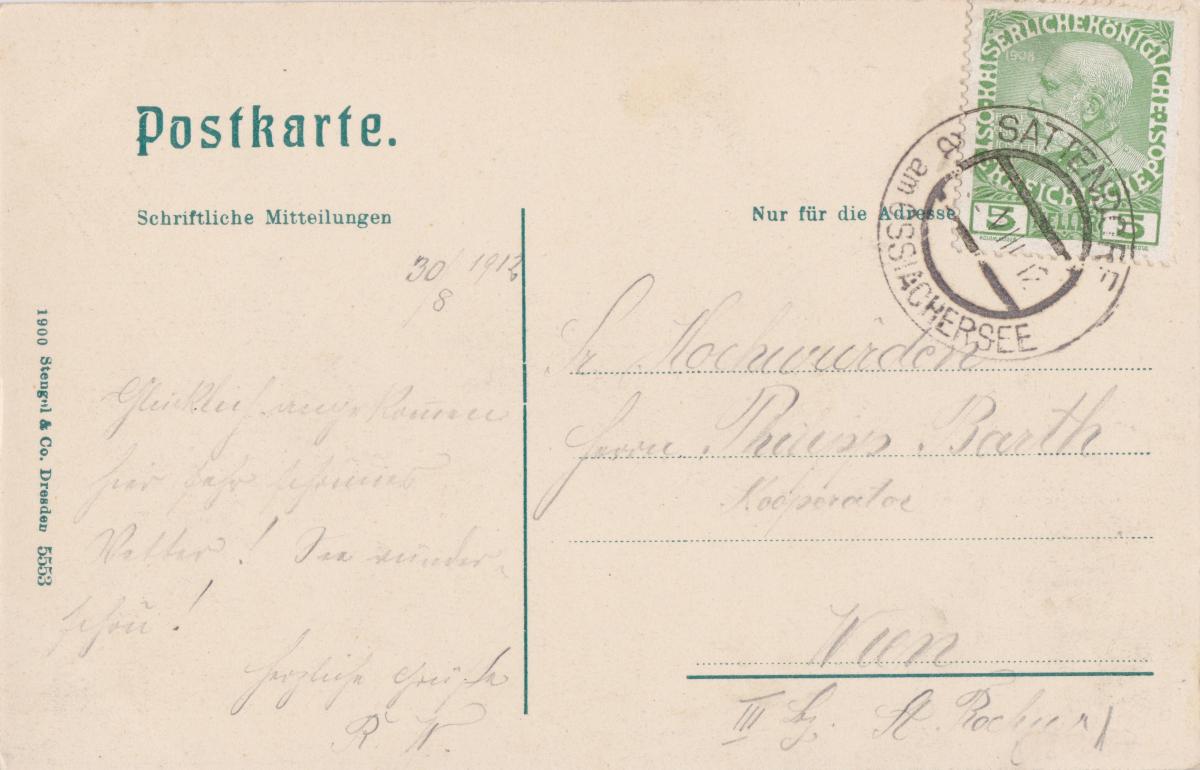 Postkarte.
Schriftliche Mitteilungen
Nur für die Adresse
KAISERLICHE KÖNIGLICHE
1908
ÖSTERREICHISCHE POST
5 HELLER 5
SATTENDORF
am OSSIACHERSEE
30/8 1912
Glücklich angekommen
hier sehr schönes
Wetter! See wunder-
schön!
Herzliche Grüße
R. W.
Sr. Hochwürden
Herrn Philipp Barth
Kooperator
Wien
III Bz. St. Rochus
1900 Stengel & Co. Dresden 5553